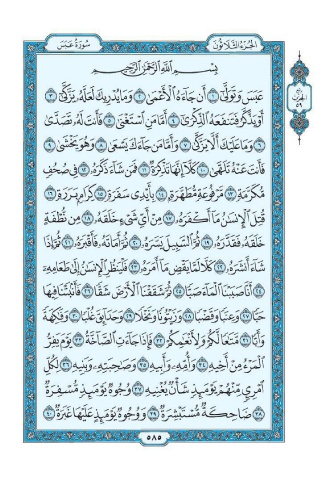 سورة عبس
الجزء الثلاثون
بسم الله الرحمن الرحيم
عَبَسَ وَتَوَلَّىٰ ١ أَن جَاءَهُ الْأَعْمَىٰ ٢ وَمَا يُدْرِيكَ لَعَلَّهُ يَزَّكَّىٰ ٣
أَوْ يَذَّكَّرُ فَتَنفَعَهُ الذِّكْرَىٰ ٤ أَمَّا مَنِ اسْتَغْنَىٰ ٥ فَأَنتَ لَهُ تَصَدَّىٰ
٦ وَمَا عَلَيْكَ أَلَّا يَزَّكَّىٰ ٧ وَأَمَّا مَن جَاءَكَ يَسْعَىٰ ٨ وَهُوَ يَخْشَىٰ ٩
فَأَنتَ عَنْهُ تَلَهَّىٰ ١٠ كَلَّا إِنَّهَا تَذْكِرَةٌ ١١ فَمَن شَاءَ ذَكَرَهُ ١٢ فِي صُحُفٍ
مُّكَرَّمَةٍ ١٣ مَّرْفُوعَةٍ مُّطَهَّرَةٍ ١٤ بِأَيْدِي سَفَرَةٍ ١٥ كِرَامٍ بَرَرَةٍ ١٦
قُتِلَ الْإِنسَانُ مَا أَكْفَرَهُ ١٧ مِنْ أَيِّ شَيْءٍ خَلَقَهُ ١٨ مِن نُّطْفَةٍ
خَلَقَهُ فَقَدَّرَهُ ١٩ ثُمَّ السَّبِيلَ يَسَّرَهُ ٢٠ ثُمَّ أَمَاتَهُ فَأَقْبَرَهُ ٢١ ثُمَّ إِذَا
شَاءَ أَنشَرَهُ ٢٢ كَلَّا لَمَّا يَقْضِ مَا أَمَرَهُ ٢٣ فَلْيَنظُرِ الْإِنسَانُ إِلَىٰ طَعَامِهِ
٢٤ أَنَّا صَبَبْنَا الْمَاءَ صَبًّا ٢٥ ثُمَّ شَقَقْنَا الْأَرْضَ شَقًّا ٢٦ فَأَنبَتْنَا فِيهَا
حَبًّا ٢٧ وَعِنَبًا وَقَضْبًا ٢٨ وَزَيْتُونًا وَنَخْلًا ٢٩ وَحَدَائِقَ غُلْبًا ٣٠ وَفَاكِهَةً
وَأَبًّا ٣١ مَّتَاعًا لَّكُمْ وَلِأَنْعَامِكُمْ ٣٢ فَإِذَا جَاءَتِ الصَّاخَّةُ ٣٣ يَوْمَ يَفِرُّ
الْمَرْءُ مِنْ أَخِيهِ ٣٤ وَأُمِّهِ وَأَبِيهِ ٣٥ وَصَاحِبَتِهِ وَبَنِيهِ ٣٦ لِكُلِّ
امْرِئٍ مِّنْهُمْ يَوْمَئِذٍ شَأْنٌ يُغْنِيهِ ٣٧ وُجُوهٌ يَوْمَئِذٍ مُّسْفِرَةٌ
٣٨ ضَاحِكَةٌ مُّسْتَبْشِرَةٌ ٣٩ وَوُجُوهٌ يَوْمَئِذٍ عَلَيْهَا غَبَرَةٌ ٤٠
٥٨٥
الحزب
٥٩